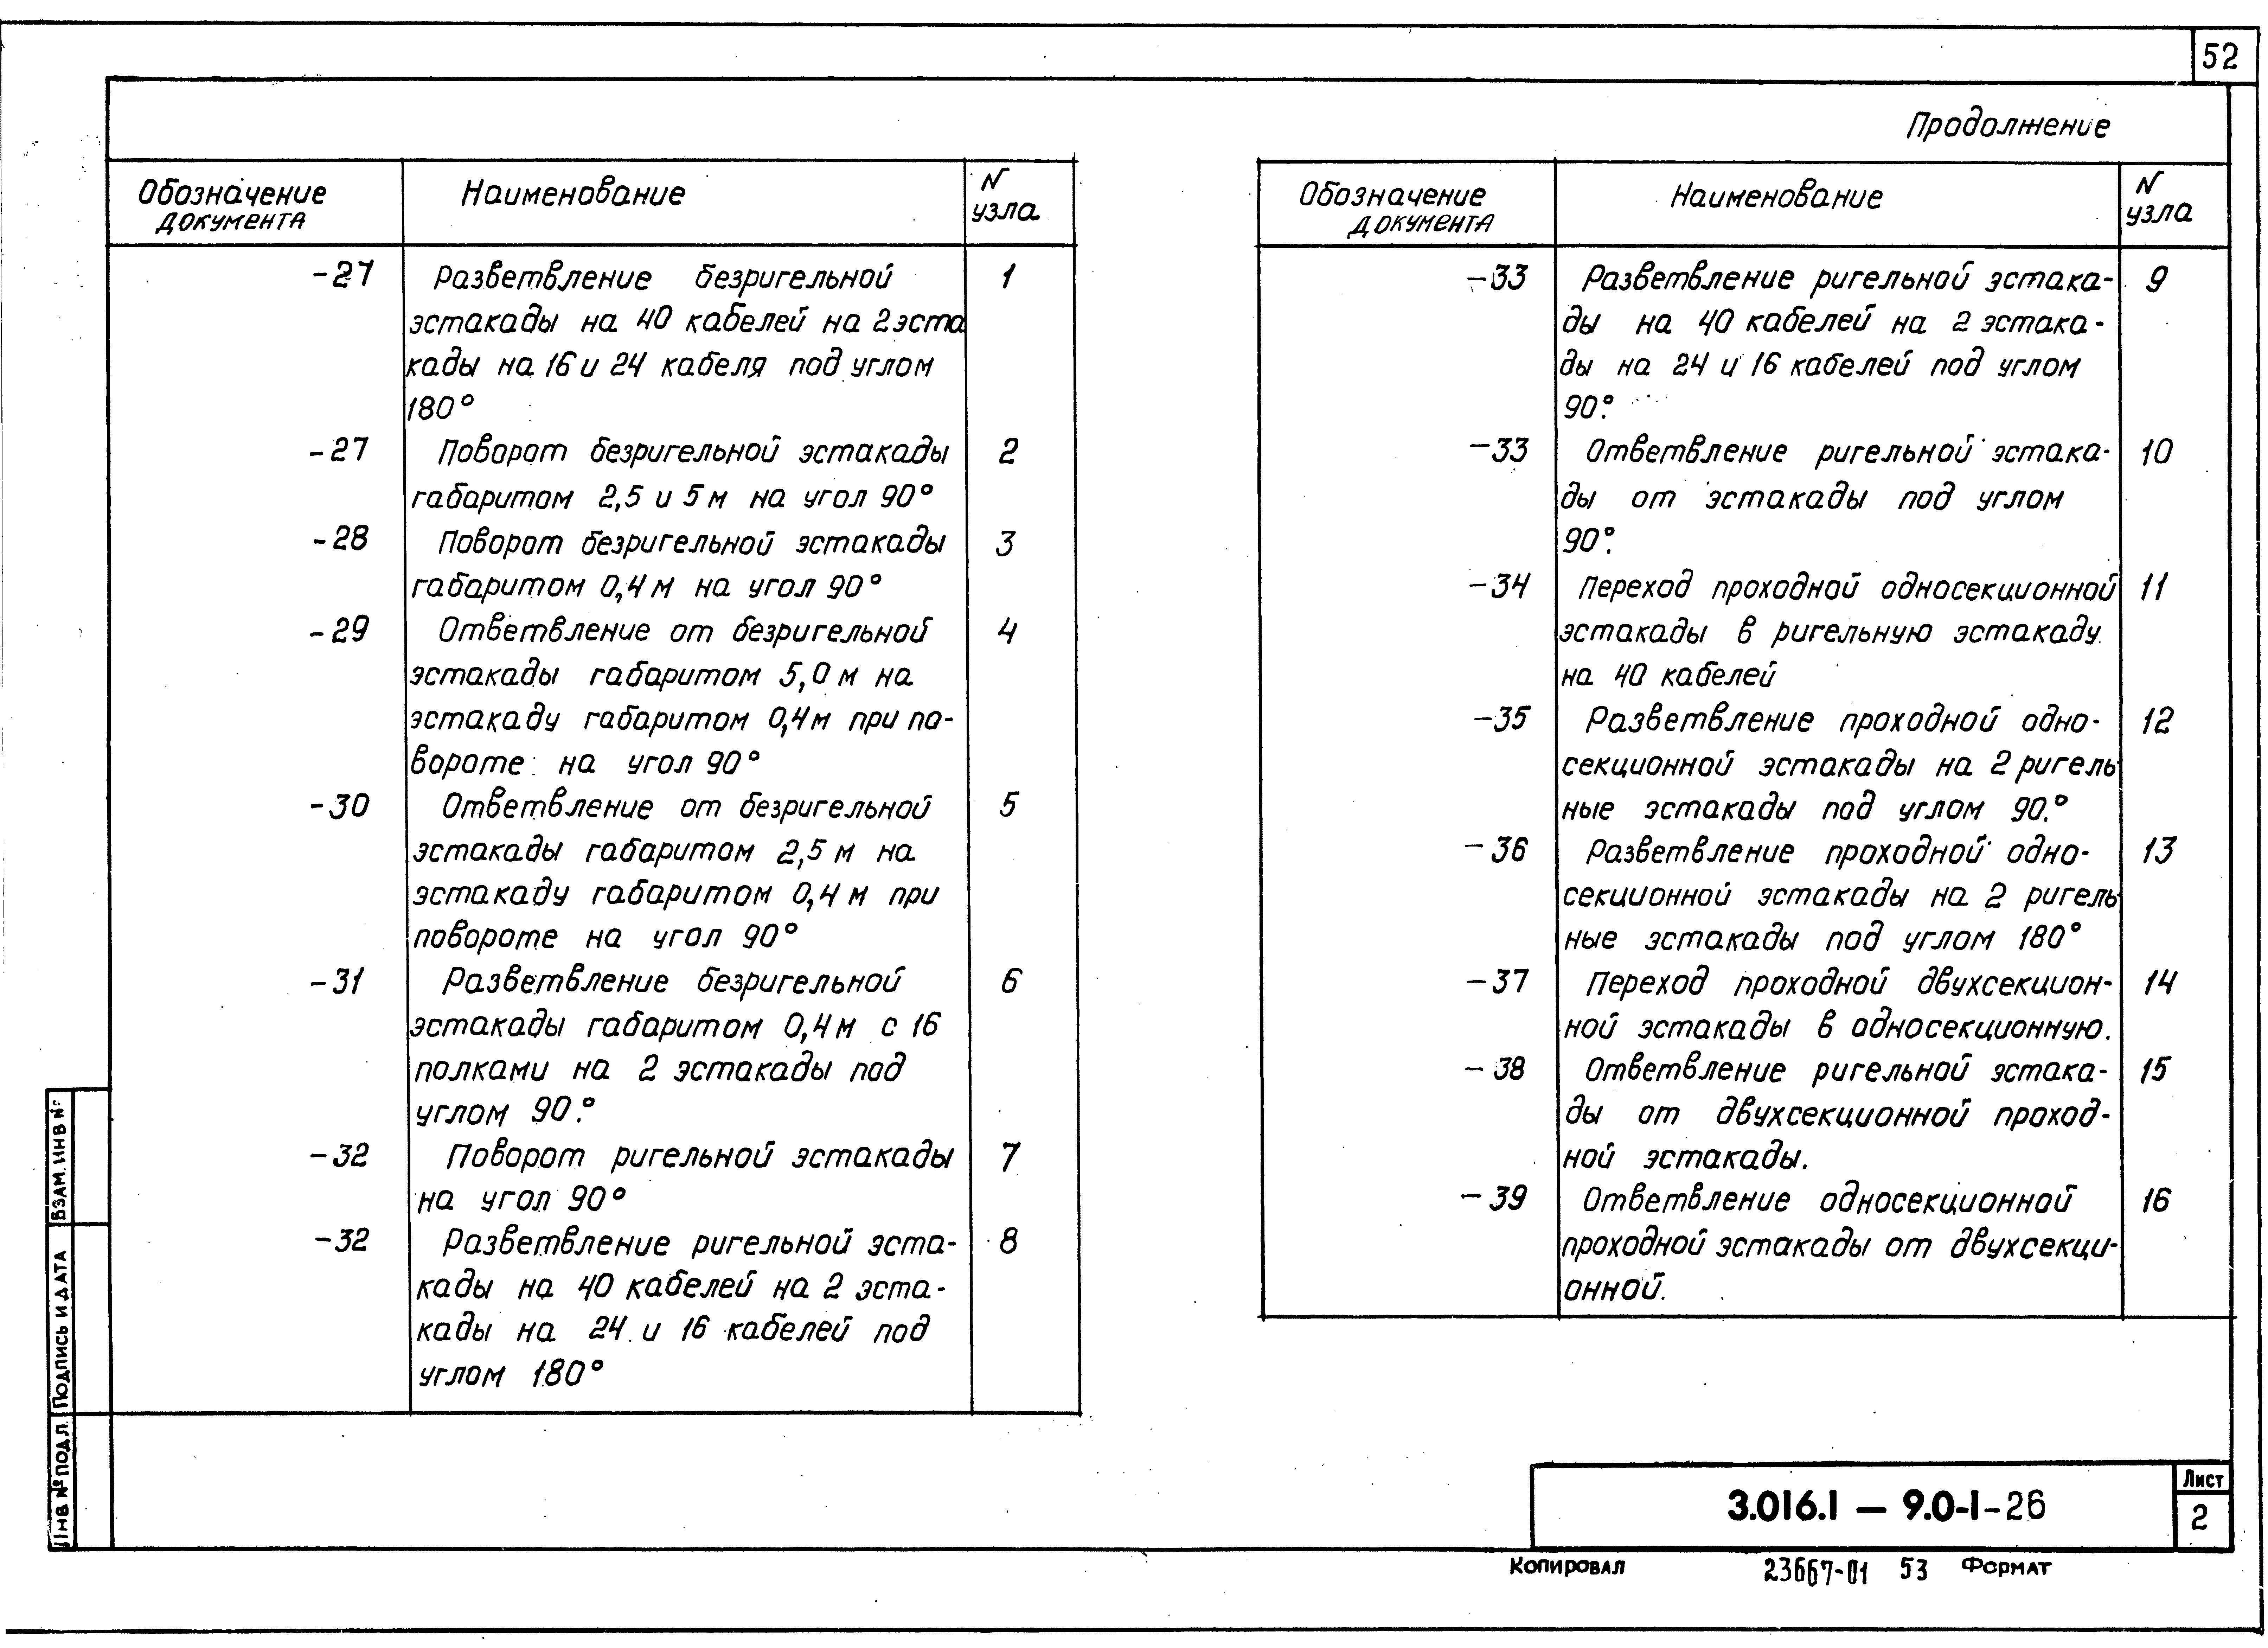 52
Продолжение
Обозначение документа
Наименование
N узла
-27
Разветвление безригельной
1
эстакады на 40 кабелей на 2 эста
кады на 16 и 24 кабеля под углом
180°
-27
Поворот безригельной эстакады
2
габаритом 2,5 и 5 м на угол 90°
-28
Поворот безригельной эстакады
3
габаритом 0,4 м на угол 90°
-29
Ответвление от безригельной
4
эстакады габаритом 5,0 м на
эстакаду габаритом 0,4 м при по-
вороте на угол 90°
-30
Ответвление от безригельной
5
эстакады габаритом 2,5 м на
эстакаду габаритом 0,4 м при
повороте на угол 90°
-31
Разветвление безригельной
6
эстакады габаритом 0,4 м с 16
полками на 2 эстакады под
углом 90°.
-32
Поворот ригельной эстакады
7
на угол 90°
-32
Разветвление ригельной эста-
8
кады на 40 кабелей на 2 эста-
кады на 24 и 16 кабелей под
углом 180°
Обозначение документа
Наименование
N узла
-33
Разветвление ригельной эстака-
9
ды на 40 кабелей на 2 эстака-
ды на 24 и 16 кабелей под углом
90°.
-33
Ответвление ригельной эстака-
10
ды от эстакады под углом
90°.
-34
Переход проходной односекционной
11
эстакады в ригельную эстакаду
на 40 кабелей
-35
Разветвление проходной одно-
12
секционной эстакады на 2 ригель
ные эстакады под углом 90.°
-36
Разветвление проходной одно-
13
секционной эстакады на 2 ригель
ные эстакады под углом 180°
-37
Переход проходной двухсекцион-
14
ной эстакады в односекционную.
-38
Ответвление ригельной эстака-
15
ды от двухсекционной проход-
ной эстакады.
-39
Ответвление односекционной
16
проходной эстакады от двухсекци-
онной.
ВЗАМ. ИНВ №
Подпись и дата
Инв № подл.
3.016.1 — 9.0-1-26
Лист
2
Копировал
23667-01 53
Формат